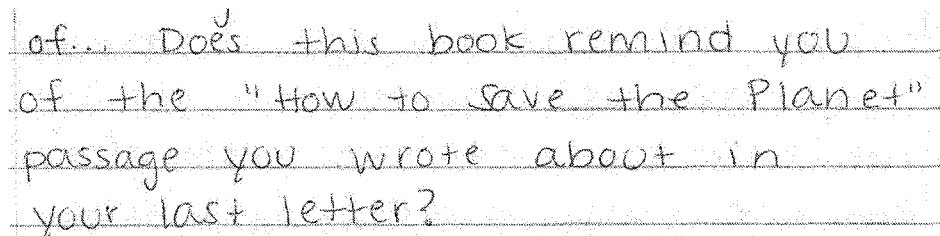 of... Does this book remind you
of the "How to save the Planet"
passage you wrote about in
your last letter?